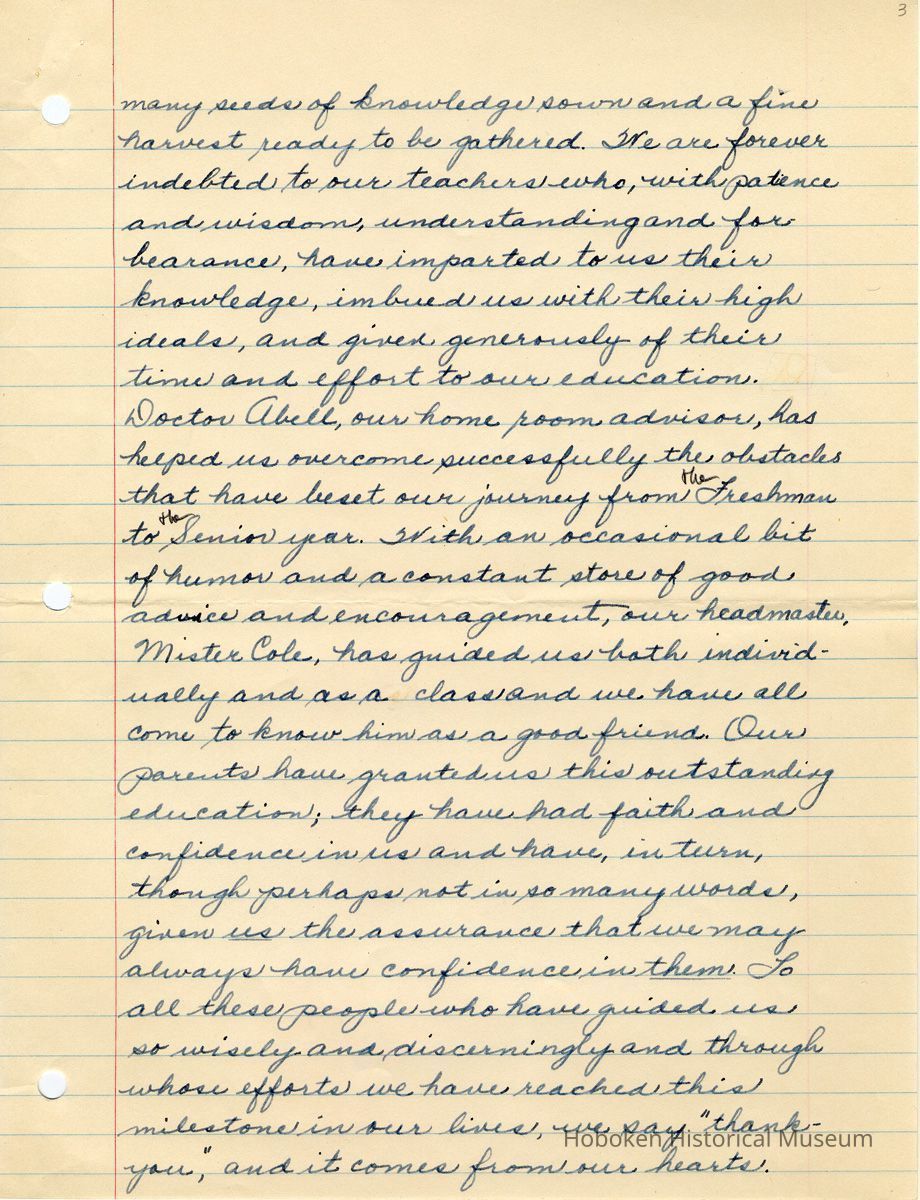 3
many seeds of knowledge sown and a fine
harvest ready to be gathered. We are forever
indebted to our teachers who, with patience
and wisdom, understanding and for-
bearance, have imparted to us their
knowledge, imbued us with their high
ideals, and given generously of their
time and effort to our education.
Doctor Abell, our home room advisor, has
helped us overcome successfully the obstacles
that have beset our journey from the Freshman
to the Senior year. With an occasional bit
of humor and a constant store of good
advice and encouragement, our headmaster,
Mister Cole, has guided us both individ-
ually and as a class and we have all
come to know him as a good friend. Our
parents have granted us this outstanding
education; they have had faith and
confidence in us and have, in turn,
though perhaps not in so many words,
given us the assurance that we may
always have confidence in them. To
all these people who have guided us
so wisely and discerningly and through
whose efforts we have reached this
milestone in our lives, we say "thank-
you", and it comes from our hearts.
Hoboken Historical Museum